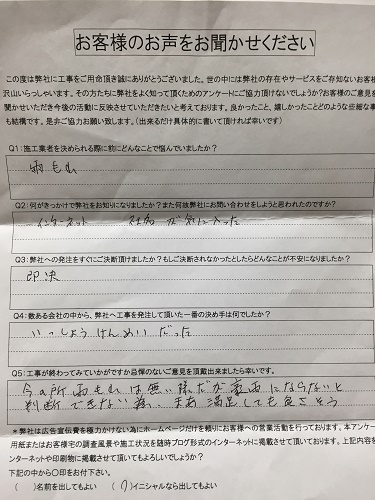 お客様のお声をお聞かせください
この度は弊社に工事をご用命頂き誠にありがとうございます。世の中には弊社の存在やサービスをご存知ないお客様
沢山いらっしゃいます。その方たちに弊社をよく知って頂くためのアンケートにご協力頂けないでしょうか?お客様のご意見を
聞かせいただき今後の活動に反映させていただきたいと考えております。良かったこと、嬉しかったことどのような些細な事
も結構です。是非ご協力お願い致します。(出来るだけ具体的に書いて頂ければ幸いです)
Q1:施工業者を決められる際に前にどんなことで悩んでいましたか?
雨もり
Q2:何がきっかけで弊社をお知りになりましたか?また何故弊社にお問い合わせをしようと思われたのですか?
インターネット 社名が気に入った
Q3:弊社への発注をすぐにご決断頂けましたか?もしご決断されなかったとしたらどんなことが不安になりましたか?
即決
Q4:数ある会社の中から、弊社へ工事を発注して頂いた一番の決め手は何でしたか?
いっしょうけんめいだった
Q5:工事が終わってみていかがですか忌憚のないご意見を頂戴出来ましたら幸いです。
今の所雨もりは無い様だが豪雨にならないと
判断できない為、まあ満足しても良さそう
*弊社は広告宣伝費を極力かけない為にホームページだけを頼りにお客様への営業活動を行っております。本アンケー
用紙またはお客様宅の調査風景や施工状況を随時ブログ形式のインターネットに掲載させて頂いております。上記内容を
ンターネットや印刷物に掲載させて頂いてもよろしいでしょうか?
下記の中から〇印をお付下さい。
( )名前を出してもよい ( )イニシャルなら出してもよい